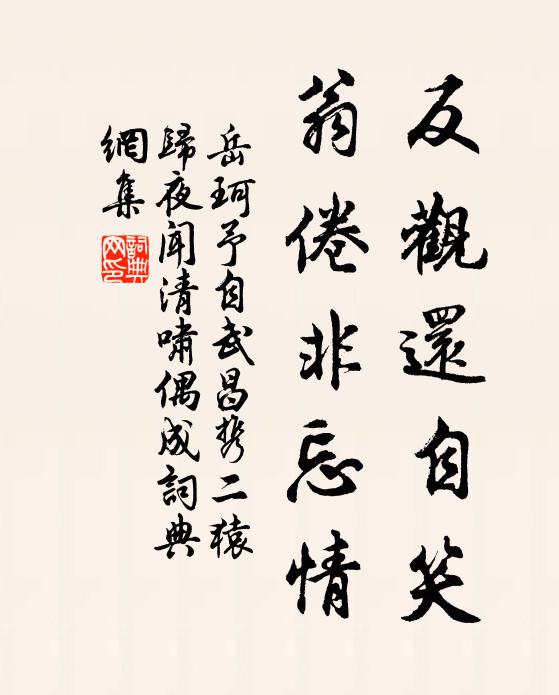 反觀還自笑
翁倦非忘情
岳珂予自武昌携二猿
歸夜闻清啸偶成詞典
網集
詞典網印